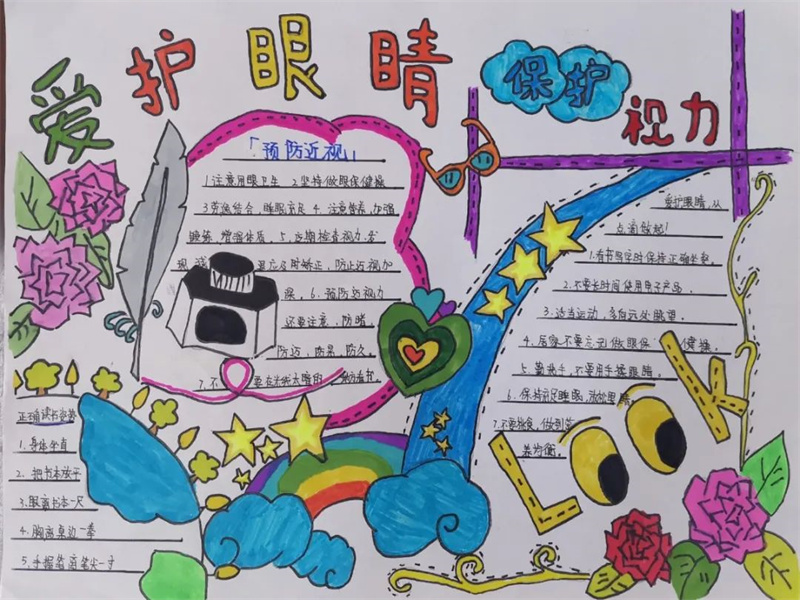 爱护眼睛
保护
视力
「预防近视」
1注意用眼卫生 2坚持做眼保健操
3劳逸结合,睡眠充足 4.注意营养,加强
锻炼,增强体质。5.定期检查视力,发
现 应及时矫正,防止近视加
深。6.预防近视力
还要注意、防晴
防近,防累,防久。
7.不要在光线太暗的 看书。
爱护眼睛,从
点滴做起!
1.看书写字时保持正确坐姿。
2.不要长时间使用电子产品。
3.适当运动,多向远处眺望。
4.居家不要忘记做眼保 健操。
5.勤洗手,不要用手揉眼睛。
6.保持充足睡眠,
7.不要挑食,做到营
养均衡。
正确读书姿势
1.身体坐直
2.把书本放平
3.眼离书本一尺
4.胸离桌边一拳
5.手握笔离笔尖一寸
LOOK